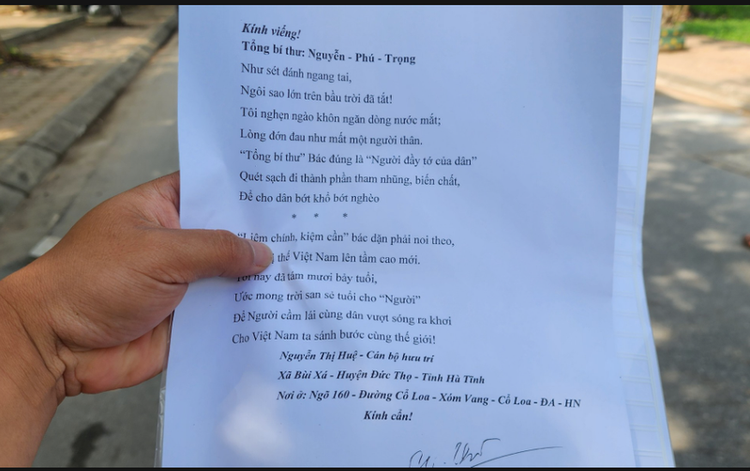 Kính viếng!
Tổng bí thư: Nguyễn - Phú - Trọng
Như sét đánh ngang tai,
Ngôi sao lớn trên bầu trời đã tắt!
Tôi nghẹn ngào khôn ngăn dòng nước mắt;
Lòng đớn đau như mất một người thân.
“Tổng bí thư” Bác đúng là “Người đầy tớ của dân”
Quét sạch đi thành phần tham nhũng, biến chất,
Để cho dân bớt khổ bớt nghèo
* * *
“Liêm chính, kiệm cần” bác dặn phải noi theo,
thế Việt Nam lên tầm cao mới.
Tôi nay đã tám mươi bảy tuổi,
Ước mong trời san sẻ tuổi cho “Người”
Để Người cầm lái cùng dân vượt sóng ra khơi
Cho Việt Nam ta sánh bước cùng thế giới!
Nguyễn Thị Huệ - Cán bộ hưu trí
Xã Bùi Xá - Huyện Đức Thọ - Tỉnh Hà Tĩnh
Nơi ở: Ngõ 160 - Đường Cổ Loa - Xóm Vang - Cổ Loa - ĐA - HN
Kính cẩn!